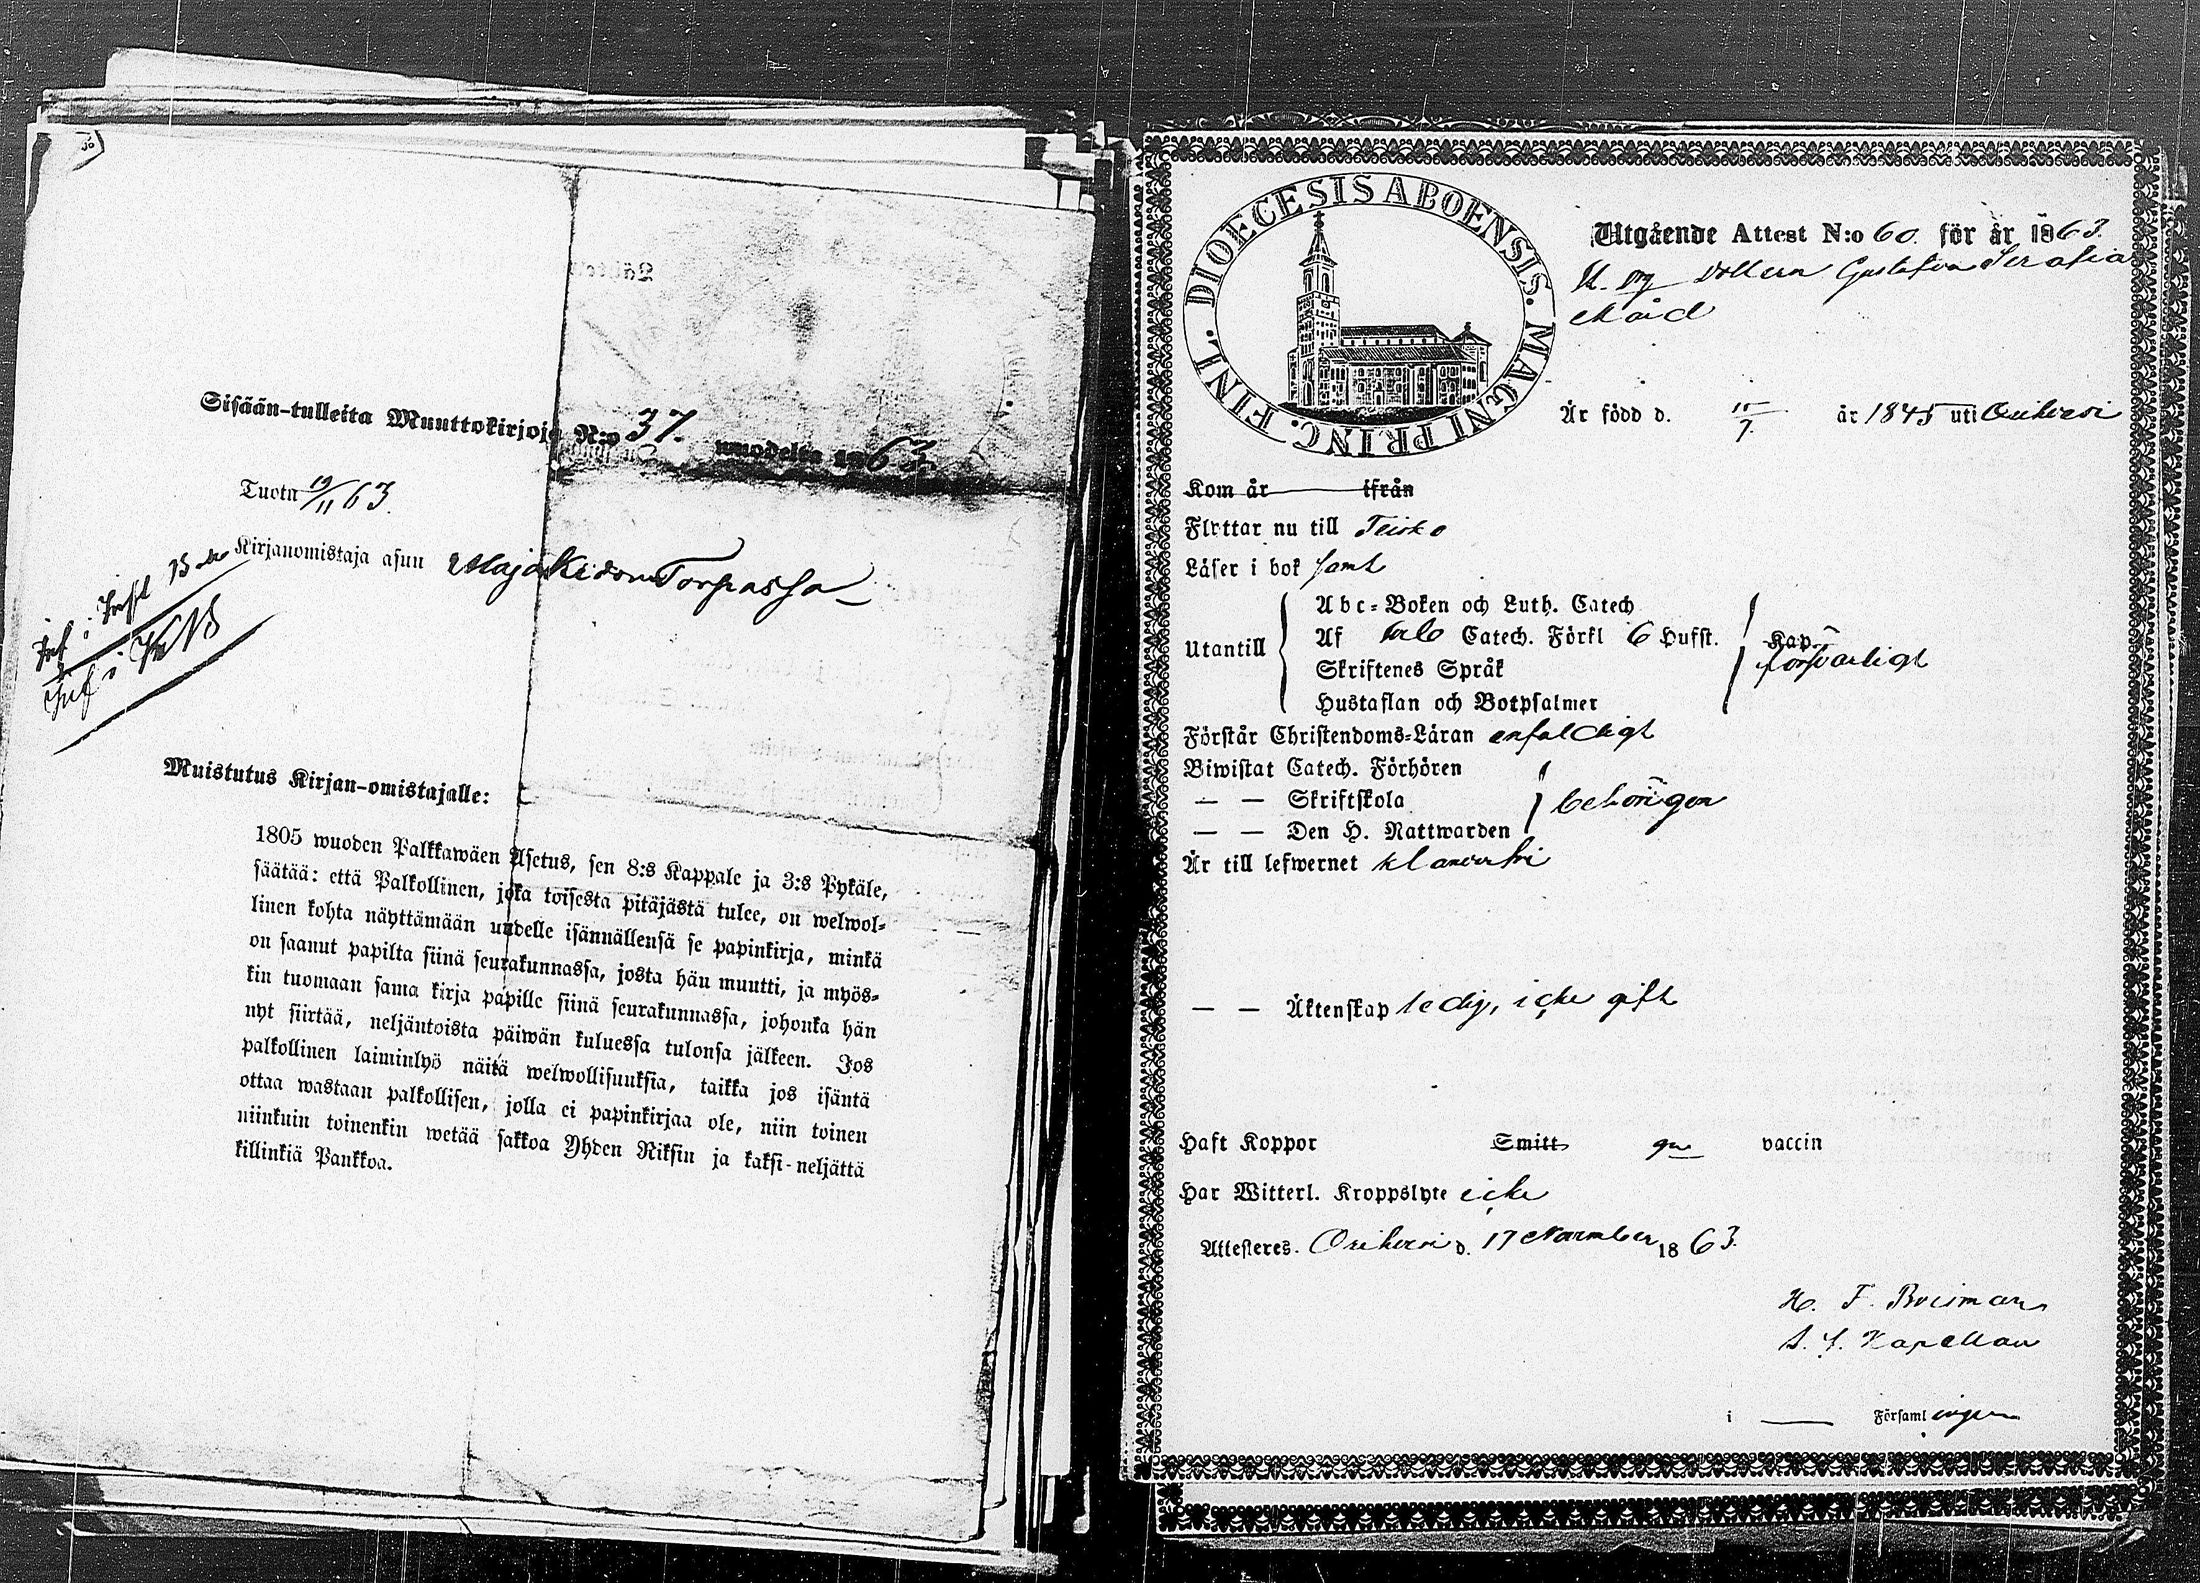 Sisään-tulleita Muuttokirjoja N:o 37. wuodelta 1863
Tuotu 19/11 63.
Kirjanomistaja asuu Torpassa
Inf i
Inf i
Muistutus Kirjan-omistajalle:
1805 wuoden Palkkawäen Asetus, sen 8:s Kappale ja 3:s Pykäle,
säätää: että Palkollinen, joka toisesta pitäjästä tulee, on welwol-
linen kohta näyttämään uudelle isännällensä se papinkirja, minkä
on saanut papilta siinä seurakunnassa, josta hän muutti, ja myös-
kin tuomaan sama kirja papille siinä seurakunnassa, johonka hän
nyt siirtää, neljäntoista päiwän kuluessa tulonsa jälkeen. Jos
palkollinen laiminlyö näitä welwollisuuksia, taikka jos isäntä
ottaa wastaan palkollisen, jolla ei papinkirjaa ole, niin toinen
niinkuin toinenkin wetää sakkoa Yhden Riksin ja kaksi-neljättä
killinkiä Pankkoa.
DIOECESIS ABOENSIS. MAGNI PRINC. FINL.
Utgående Attest N:o 60. för år 1863.
Gustafva Serafia
Är född d. 15/7. år 1845 uti Orihvesi
Kom år ifrån
Flyttar nu till Teisko
Läser i bok samt
Utantill
Abc-Boken och Luth. Catech
Af Catech. Förkl 6 Hufst. Kap.
Skriftenes Språk
Hustaflan och Botpsalmer
försvarligt
Förstår Christendoms-Läran enfaldigt
Biwistat Catech. Förhören
— — Skriftskola
— — Den H. Nattwarden
behörigen
Är till lefwernet klanderfri
— — Äktenskap ledig, icke gift
Haft Koppor Smitt vaccin
Har Witterl. Kroppslyte icke
Attesteres. Orihvesi d. 17 November 1863.
H. F. Kapellan
i — Församlingen